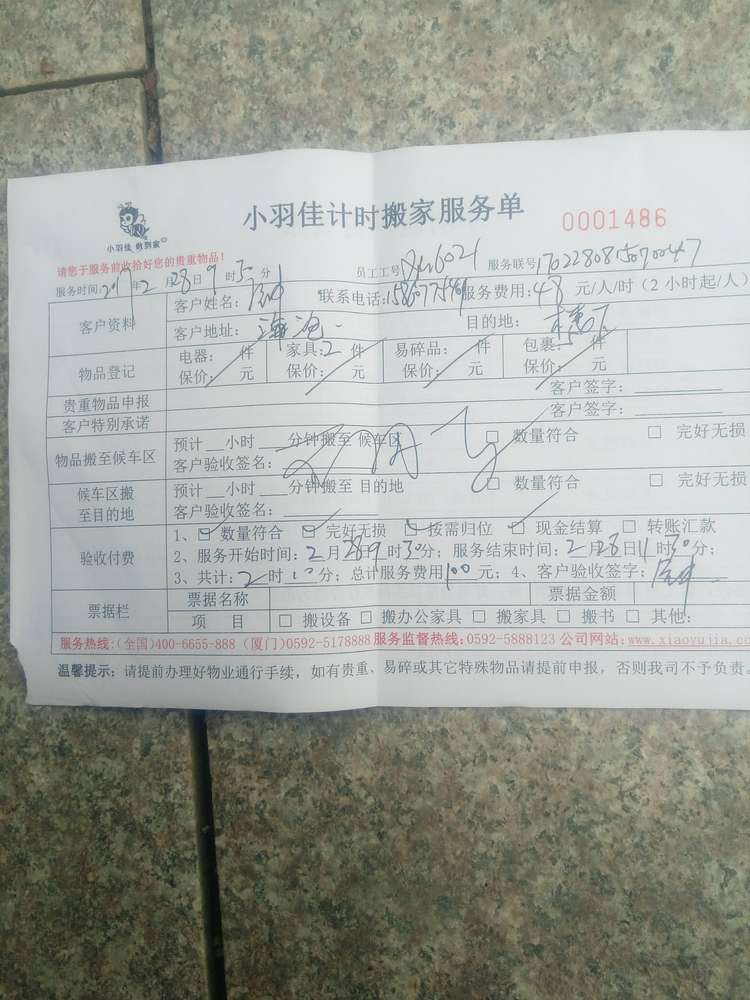 小羽佳计时搬家服务单 0001486
小羽佳 敢到家
请您于服务前收拾好您的贵重物品!
员工工号 服务联号1702280815070047
服务时间: 年2月28日9时30分
客户资料 客户姓名: 联系电话: 服务费用:48元/人/时(2小时起/人)
客户地址:海沧 目的地:
物品登记 电器: 件 家具:2件 易碎品: 件 包裹: 件
保价: 元 保价: 元 保价: 元 保价: 元
贵重物品申报 客户签字:
客户特别承诺 客户签字:
物品搬至候车区 预计 小时 分钟搬至 候车区 □ 数量符合 □ 完好无损
客户验收签名:
候车区搬至目的地 预计 小时 分钟搬至 目的地 □ 数量符合 □ 完好无损
客户验收签名:
验收付费 1、☑ 数量符合 ☑ 完好无损 ☑ 按需归位 ☑ 现金结算 □ 转账汇款
2、服务开始时间:2月28日9时30分; 服务结束时间:2月28日11时30分;
3、共计:2时 分; 总计服务费用100元; 4、客户验收签字:
票据栏 票据名称 票据金额
项 目 □ 搬设备 □ 搬办公家具 □ 搬家具 □ 搬书 □ 其他:
服务热线:(全国)400-6655-888 (厦门)0592-5178888 服务监督热线:0592-5888123 公司网站:www.xiaoyujia.co
温馨提示: 请提前办理好物业通行手续, 如有贵重、易碎或其它特殊物品请提前申报, 否则我司不予负责。